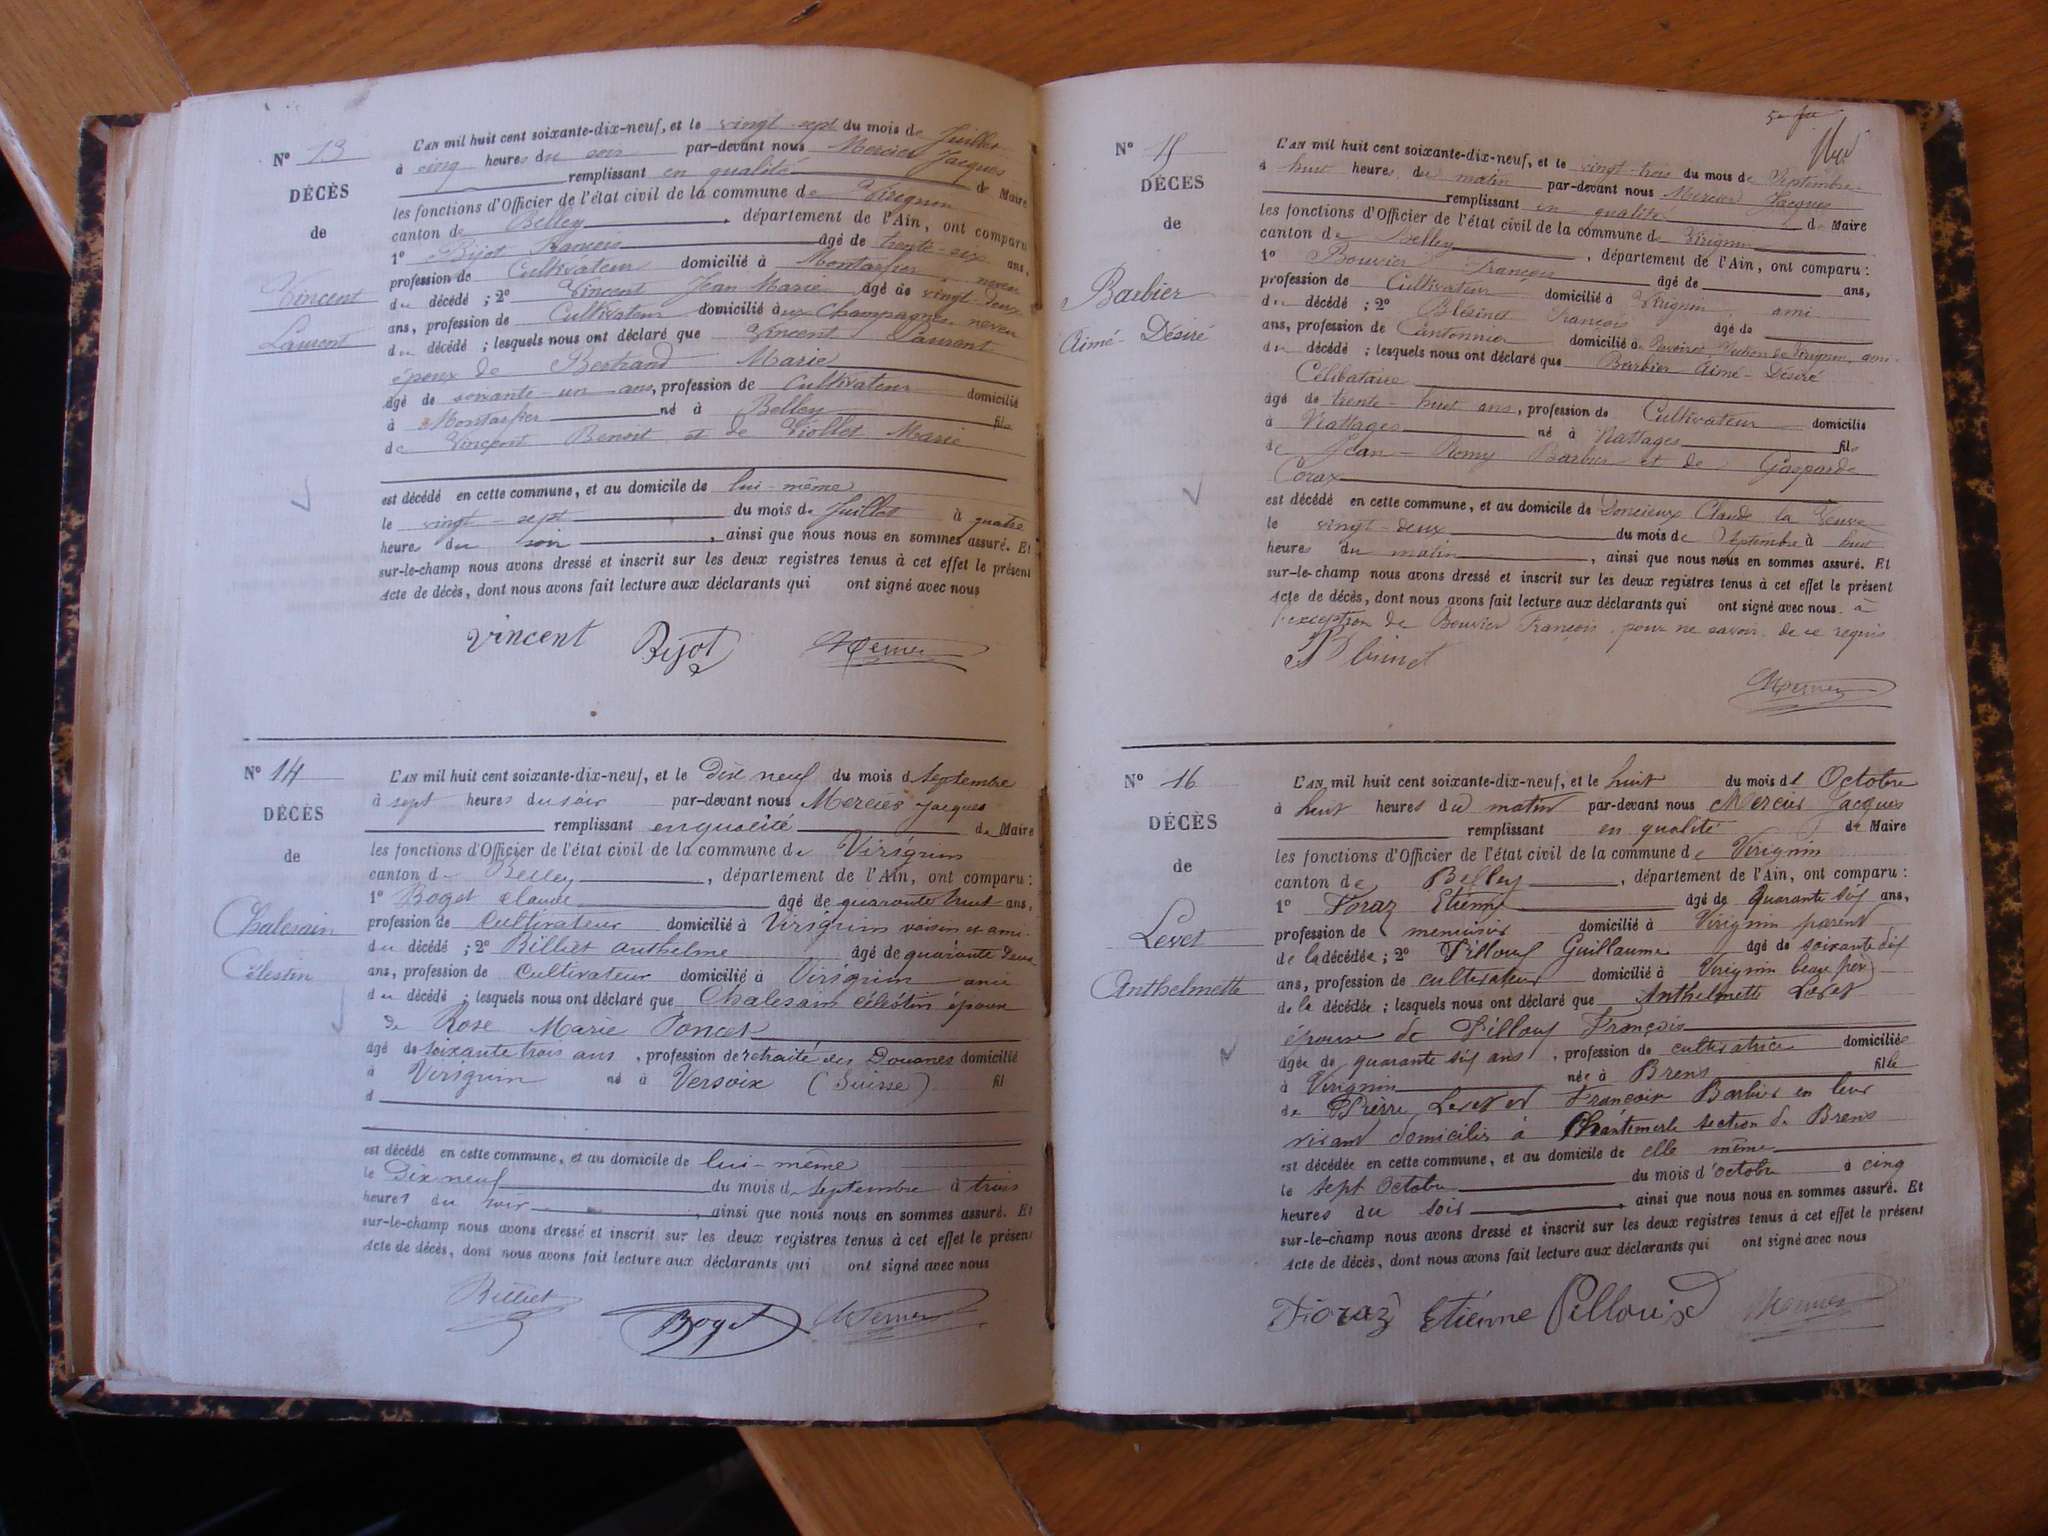 N° 13
DÉCÈS
de
Vincent
Laurent
L'AN mil huit cent soixante-dix-neuf, et le vingt-sept du mois de Juillet
à cinq heures du soir par-devant nous Mercier Jacques
remplissant en qualité de Maire
les fonctions d'Officier de l'état civil de la commune de Virignin
canton de Belley, département de l'Ain, ont comparu
1° Bijot François âgé de trente-six ans,
profession de Cultivateur domicilié à Montarfier, neveu
du décédé ; 2° Vincent Jean Marie âgé de vingt-deux
ans, profession de Cultivateur domicilié aux Champagnes neveu
du décédé ; lesquels nous ont déclaré que Vincent Laurent
époux de Bertrand Marie
âgé de soixante-un ans, profession de Cultivateur domicilié
à Montarfier né à Belley fils
de Vincent Benoit et de Viollet Marie
est décédé en cette commune, et au domicile de lui-même
le vingt-sept du mois de Juillet à quatre
heures du soir, ainsi que nous nous en sommes assuré. Et
sur-le-champ nous avons dressé et inscrit sur les deux registres tenus à cet effet le présent
Acte de décès, dont nous avons fait lecture aux déclarants qui ont signé avec nous
Vincent Bijot Mercier
N° 14
DÉCÈS
de
Chalesain
Célestin
L'AN mil huit cent soixante-dix-neuf, et le Dix neuf du mois d septembre
à sept heures du soir par-devant nous Mercier Jacques
remplissant en qualité de Maire
les fonctions d'Officier de l'état civil de la commune de Virignin
canton de Belley, département de l'Ain, ont comparu :
1° Boget Claude âgé de quarante huit ans,
profession de Cultivateur domicilié à Virignin voisin et ami
du décédé ; 2° Billiet anthelme âgé de quarante deux
ans, profession de Cultivateur domicilié à Virignin ami
du décédé ; lesquels nous ont déclaré que Chalesain célestin époux
de Rose Marie Poncet
âgé de soixante trois ans, profession de retraité des Douanes domicilié
à Virignin né à Versoix (Suisse) fil
d
est décédé en cette commune, et au domicile de lui-même
le Dix neuf du mois de septembre à trois
heures du soir, ainsi que nous nous en sommes assuré. Et
sur-le-champ nous avons dressé et inscrit sur les deux registres tenus à cet effet le présent
Acte de décès, dont nous avons fait lecture aux déclarants qui ont signé avec nous
Billiet Boget Mercier
N° 15
DÉCÈS
de
Barbier
Aimé-Désiré
L'AN mil huit cent soixante-dix-neuf, et le vingt-trois du mois de Septembre
à huit heures du matin par-devant nous Mercier Jacques
remplissant en qualité de Maire
les fonctions d'Officier de l'état civil de la commune de Virignin
canton de Belley, département de l'Ain, ont comparu :
1° Bouvier François âgé de ans,
profession de Cultivateur domicilié à Virignin ami
du décédé ; 2° Blésinet François âgé de
ans, profession de Cantonnier domicilié à section de Virignin, ami
du décédé ; lesquels nous ont déclaré que Barbier Aimé-Désiré
Célibataire
âgé de trente-huit ans, profession de Cultivateur domicilié
à Nattages né à Nattages fils
de Jean-Remy Barbier et de Gasparde
Corax
est décédé en cette commune, et au domicile de Doncieux Claude la Veuve
le vingt-deux du mois de Septembre à huit
heures du matin, ainsi que nous nous en sommes assuré. Et
sur-le-champ nous avons dressé et inscrit sur les deux registres tenus à cet effet le présent
Acte de décès, dont nous avons fait lecture aux déclarants qui ont signé avec nous à
l'exception de Bouvier François, pour ne savoir, de ce requis
Mercier
N° 16
DÉCÈS
de
Levet
Anthelmette
L'AN mil huit cent soixante-dix-neuf, et le huit du mois d' Octobre
à huit heures du matin par-devant nous Mercier Jacques
remplissant en qualité de Maire
les fonctions d'Officier de l'état civil de la commune de Virignin
canton de Belley, département de l'Ain, ont comparu :
1° Foraz Etienne âgé de quarante six ans,
profession de menuisier domicilié à Virignin parent
de la décédée ; 2° Pilloux Guillaume âgé de soixante dix
ans, profession de cultivateur domicilié à Virignin beau père
de la décédée ; lesquels nous ont déclaré que Anthelmette Levet
épouse de Pilloux François
âgée de quarante six ans, profession de cultivatrice domiciliée
à Virignin née à Brens fille
de Pierre Levet et Françoise Barbier en leur
vivant domiciliés à Chantemerle section de Brens
est décédée en cette commune, et au domicile de elle même
le sept Octobre du mois d'octobre à cinq
heures du soir, ainsi que nous nous en sommes assuré. Et
sur-le-champ nous avons dressé et inscrit sur les deux registres tenus à cet effet le présent
Acte de décès, dont nous avons fait lecture aux déclarants qui ont signé avec nous
Foraz Etiénne Pilloux Mercier